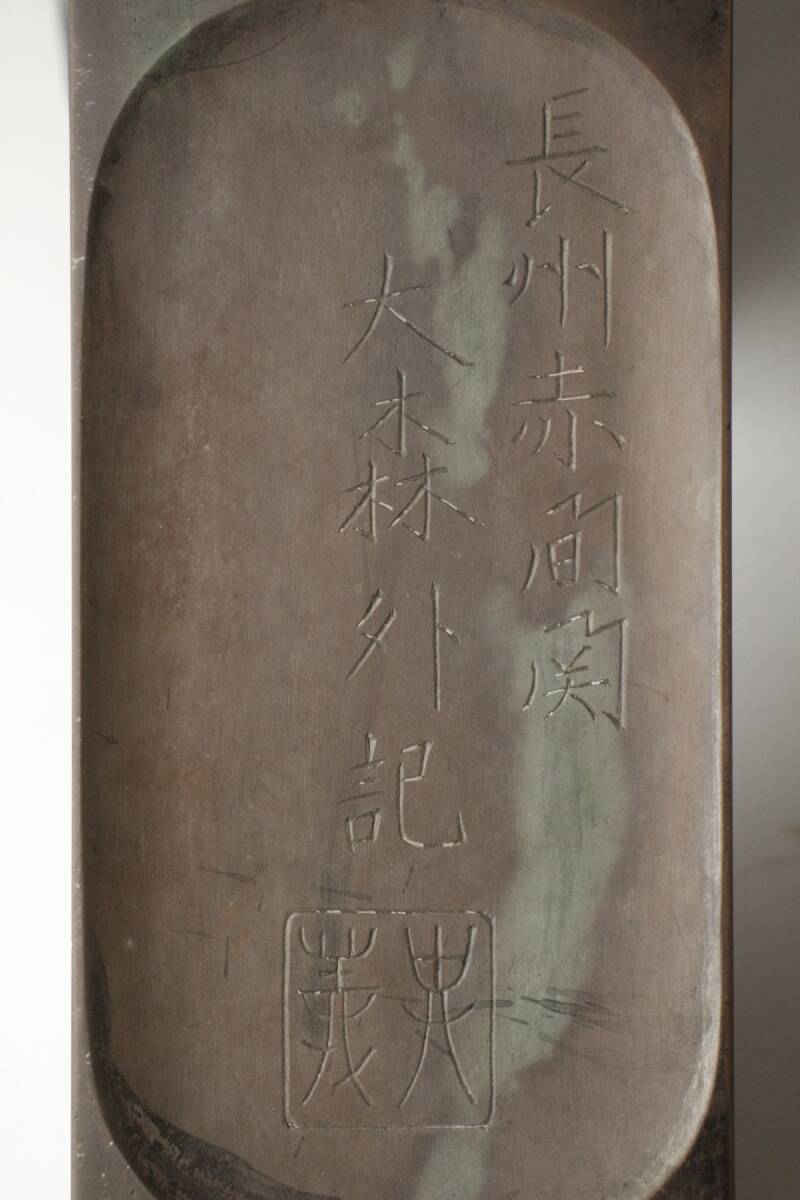 長州赤間関
大森外記